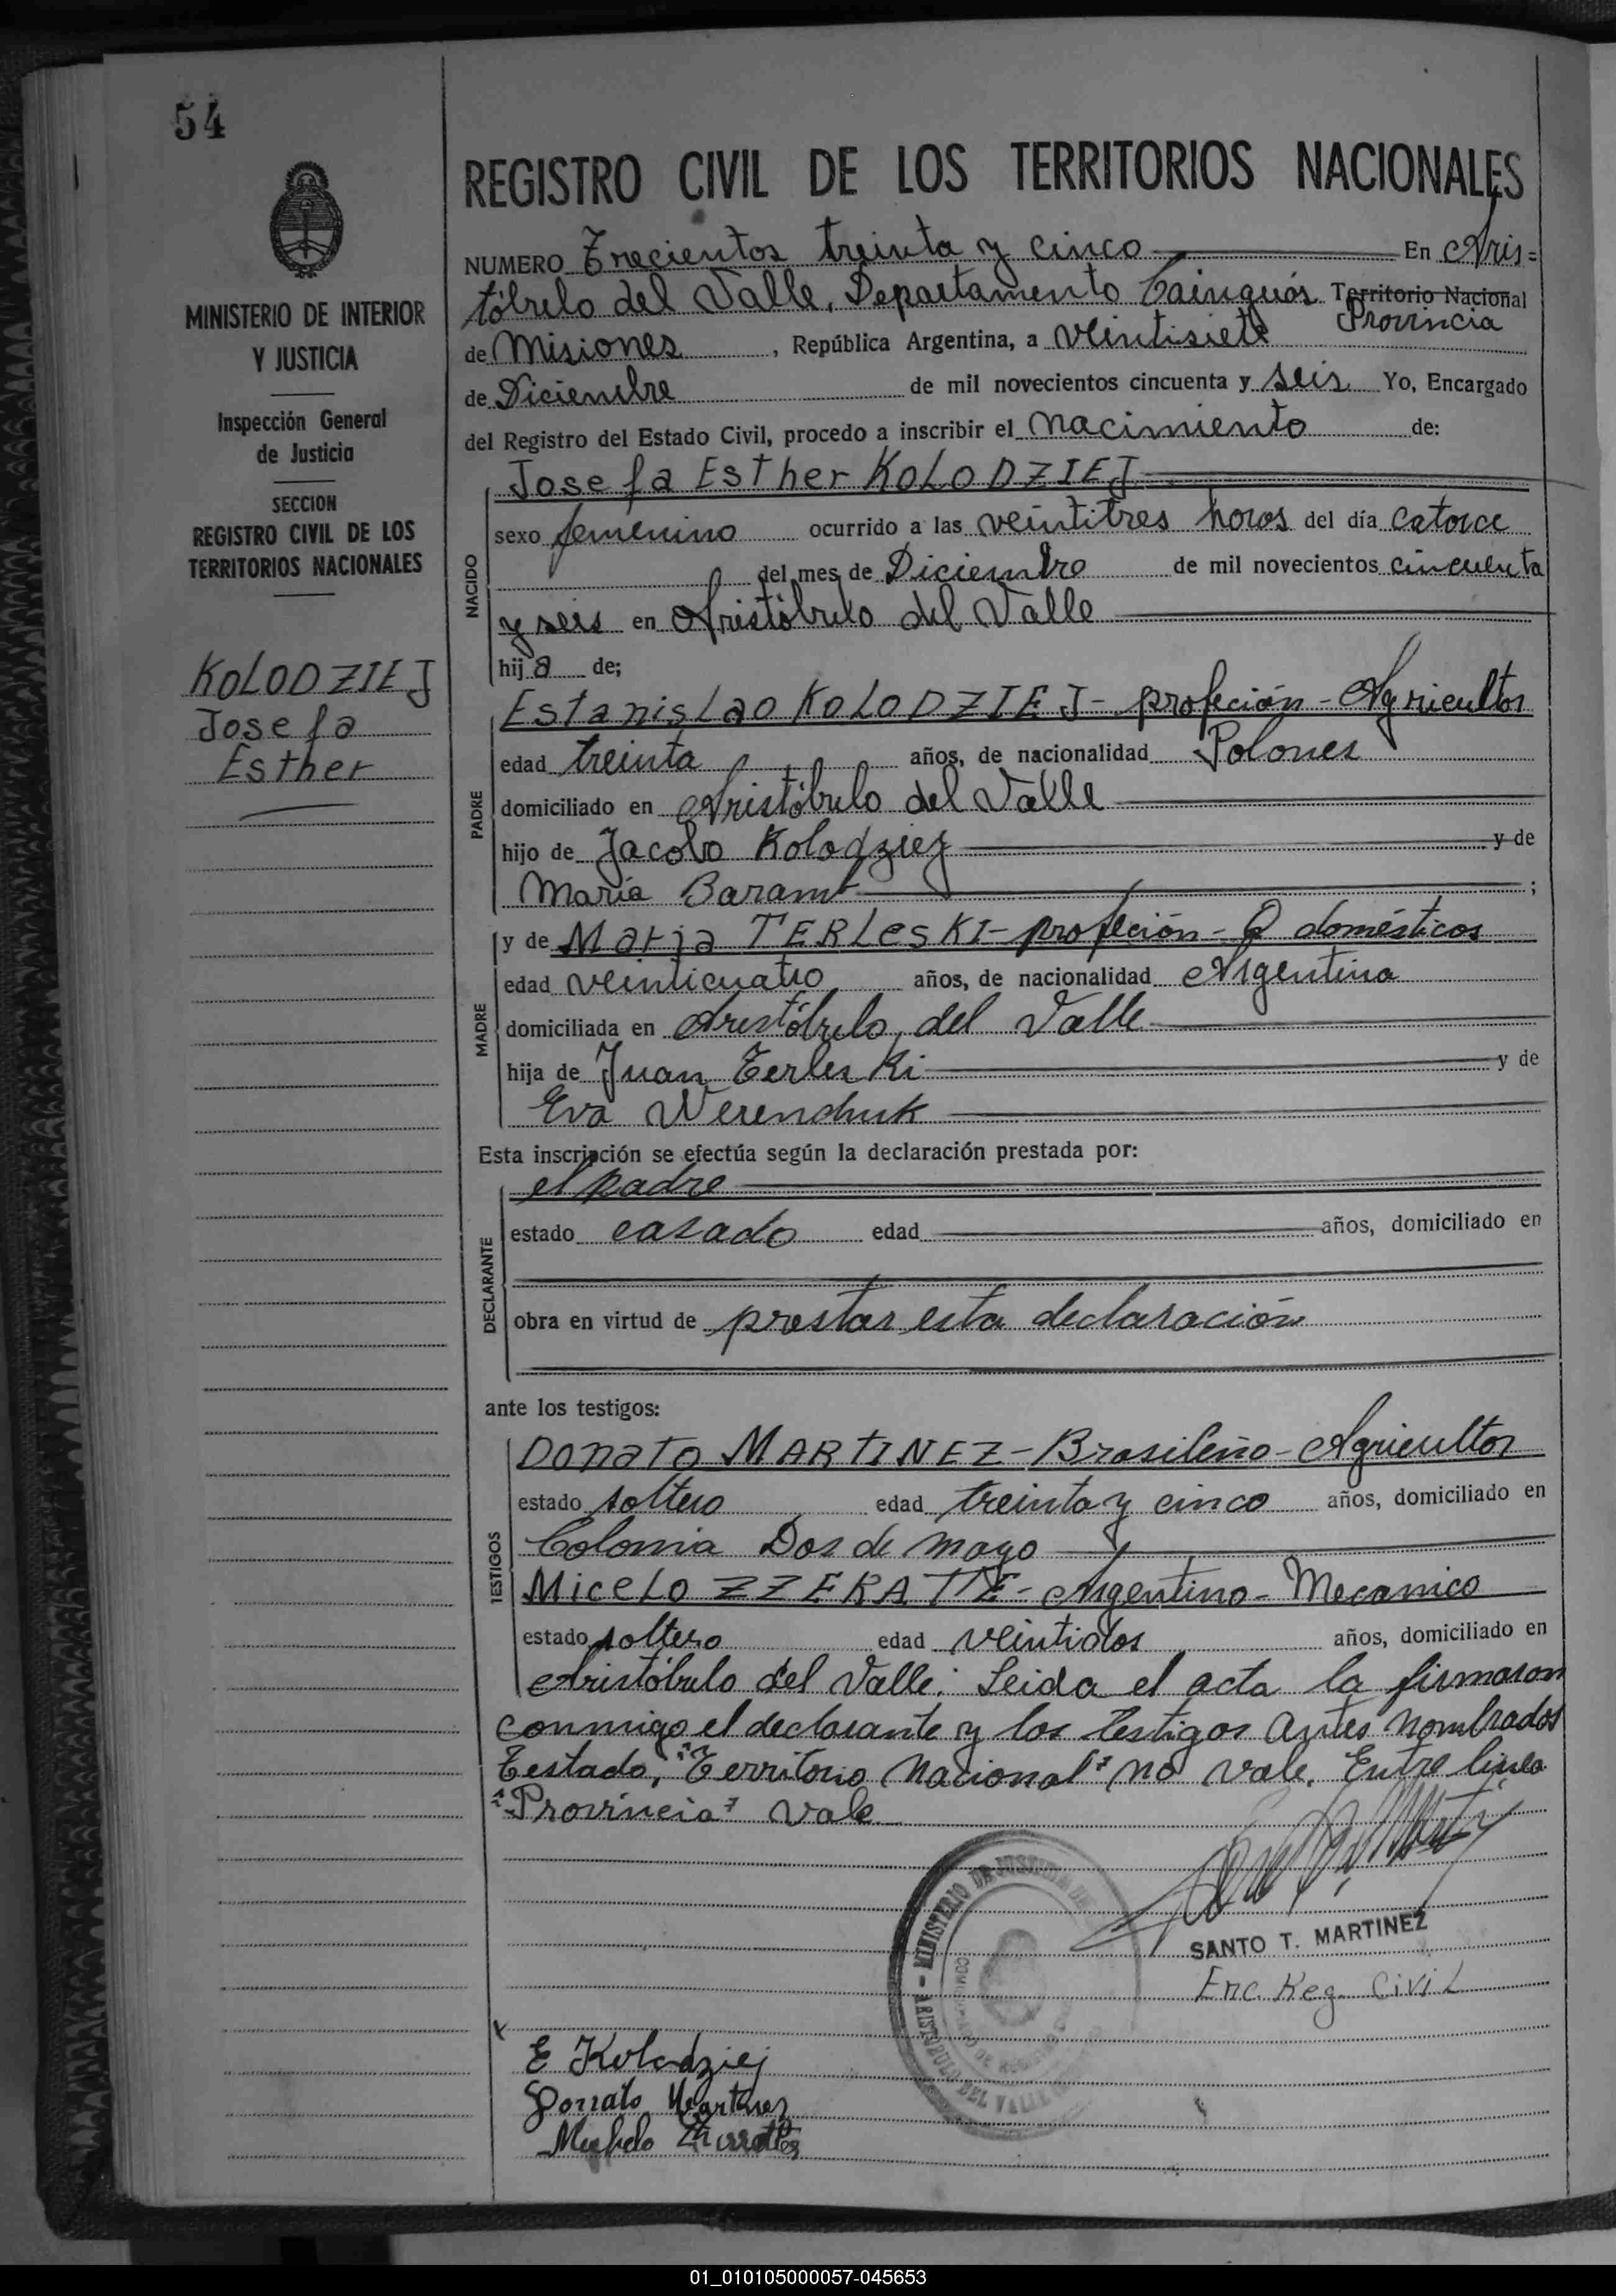 54
REGISTRO CIVIL DE LOS TERRITORIOS NACIONALES
MINISTERIO DE INTERIOR
Y JUSTICIA
Inspección General
de Justicia
SECCION
REGISTRO CIVIL DE LOS
TERRITORIOS NACIONALES
KOLODZIEJ
Josefa
Esther
NUMERO Trecientos treinta y cinco En Aris=
tóbulo del Valle, Departamento Cainguás Territorio Nacional
Provincia
de Misiones, República Argentina, a veintisiete
de Diciembre de mil novecientos cincuenta y seis Yo, Encargado
del Registro del Estado Civil, procedo a inscribir el nacimiento de:
NACIDO
Josefa Esther KOLODZIEJ
sexo femenino ocurrido a las veintitres horas del día catorce
del mes de Diciembre de mil novecientos cincuenta
y seis en Aristóbulo del Valle
hija de;
PADRE
Estanislao KOLODZIEJ - profeción - Agricultor
edad treinta años, de nacionalidad Polones
domiciliado en Aristóbulo del Valle
hijo de Jacobo Kolodziez y de
María Baram ;
MADRE
y de Maria TERLesKI - profeción - Q domésticos
edad veinticuatro años, de nacionalidad Argentina
domiciliada en Aristóbulo del Valle
hija de Juan Terleski y de
Eva Werenchuk
Esta inscripción se efectúa según la declaración prestada por:
DECLARANTE
el padre
estado casado edad años, domiciliado en
obra en virtud de prestar esta declaración
ante los testigos:
TESTIGOS
Donato MARTINEZ - Brasileño - Agricultor
estado soltero edad treinta y cinco años, domiciliado en
Colonia Dos de mayo
MiceLO ZZERATTE - Argentino - Mecanico
estado soltero edad veintidos años, domiciliado en
Aristóbulo del Valle. Leida el acta la firmaron
conmigo el declarante y los testigos antes nombrados
Testado, "Territorio Nacional" no vale. Entre linea
"Provincia" vale
SANTO T. MARTINEZ
Enc. Reg. Civil
MINISTERIO DE JUSTICIA DE
ARISTÓBULO DEL VALLE
E Kolodziej
Donato Martinez
01_010105000057-045653